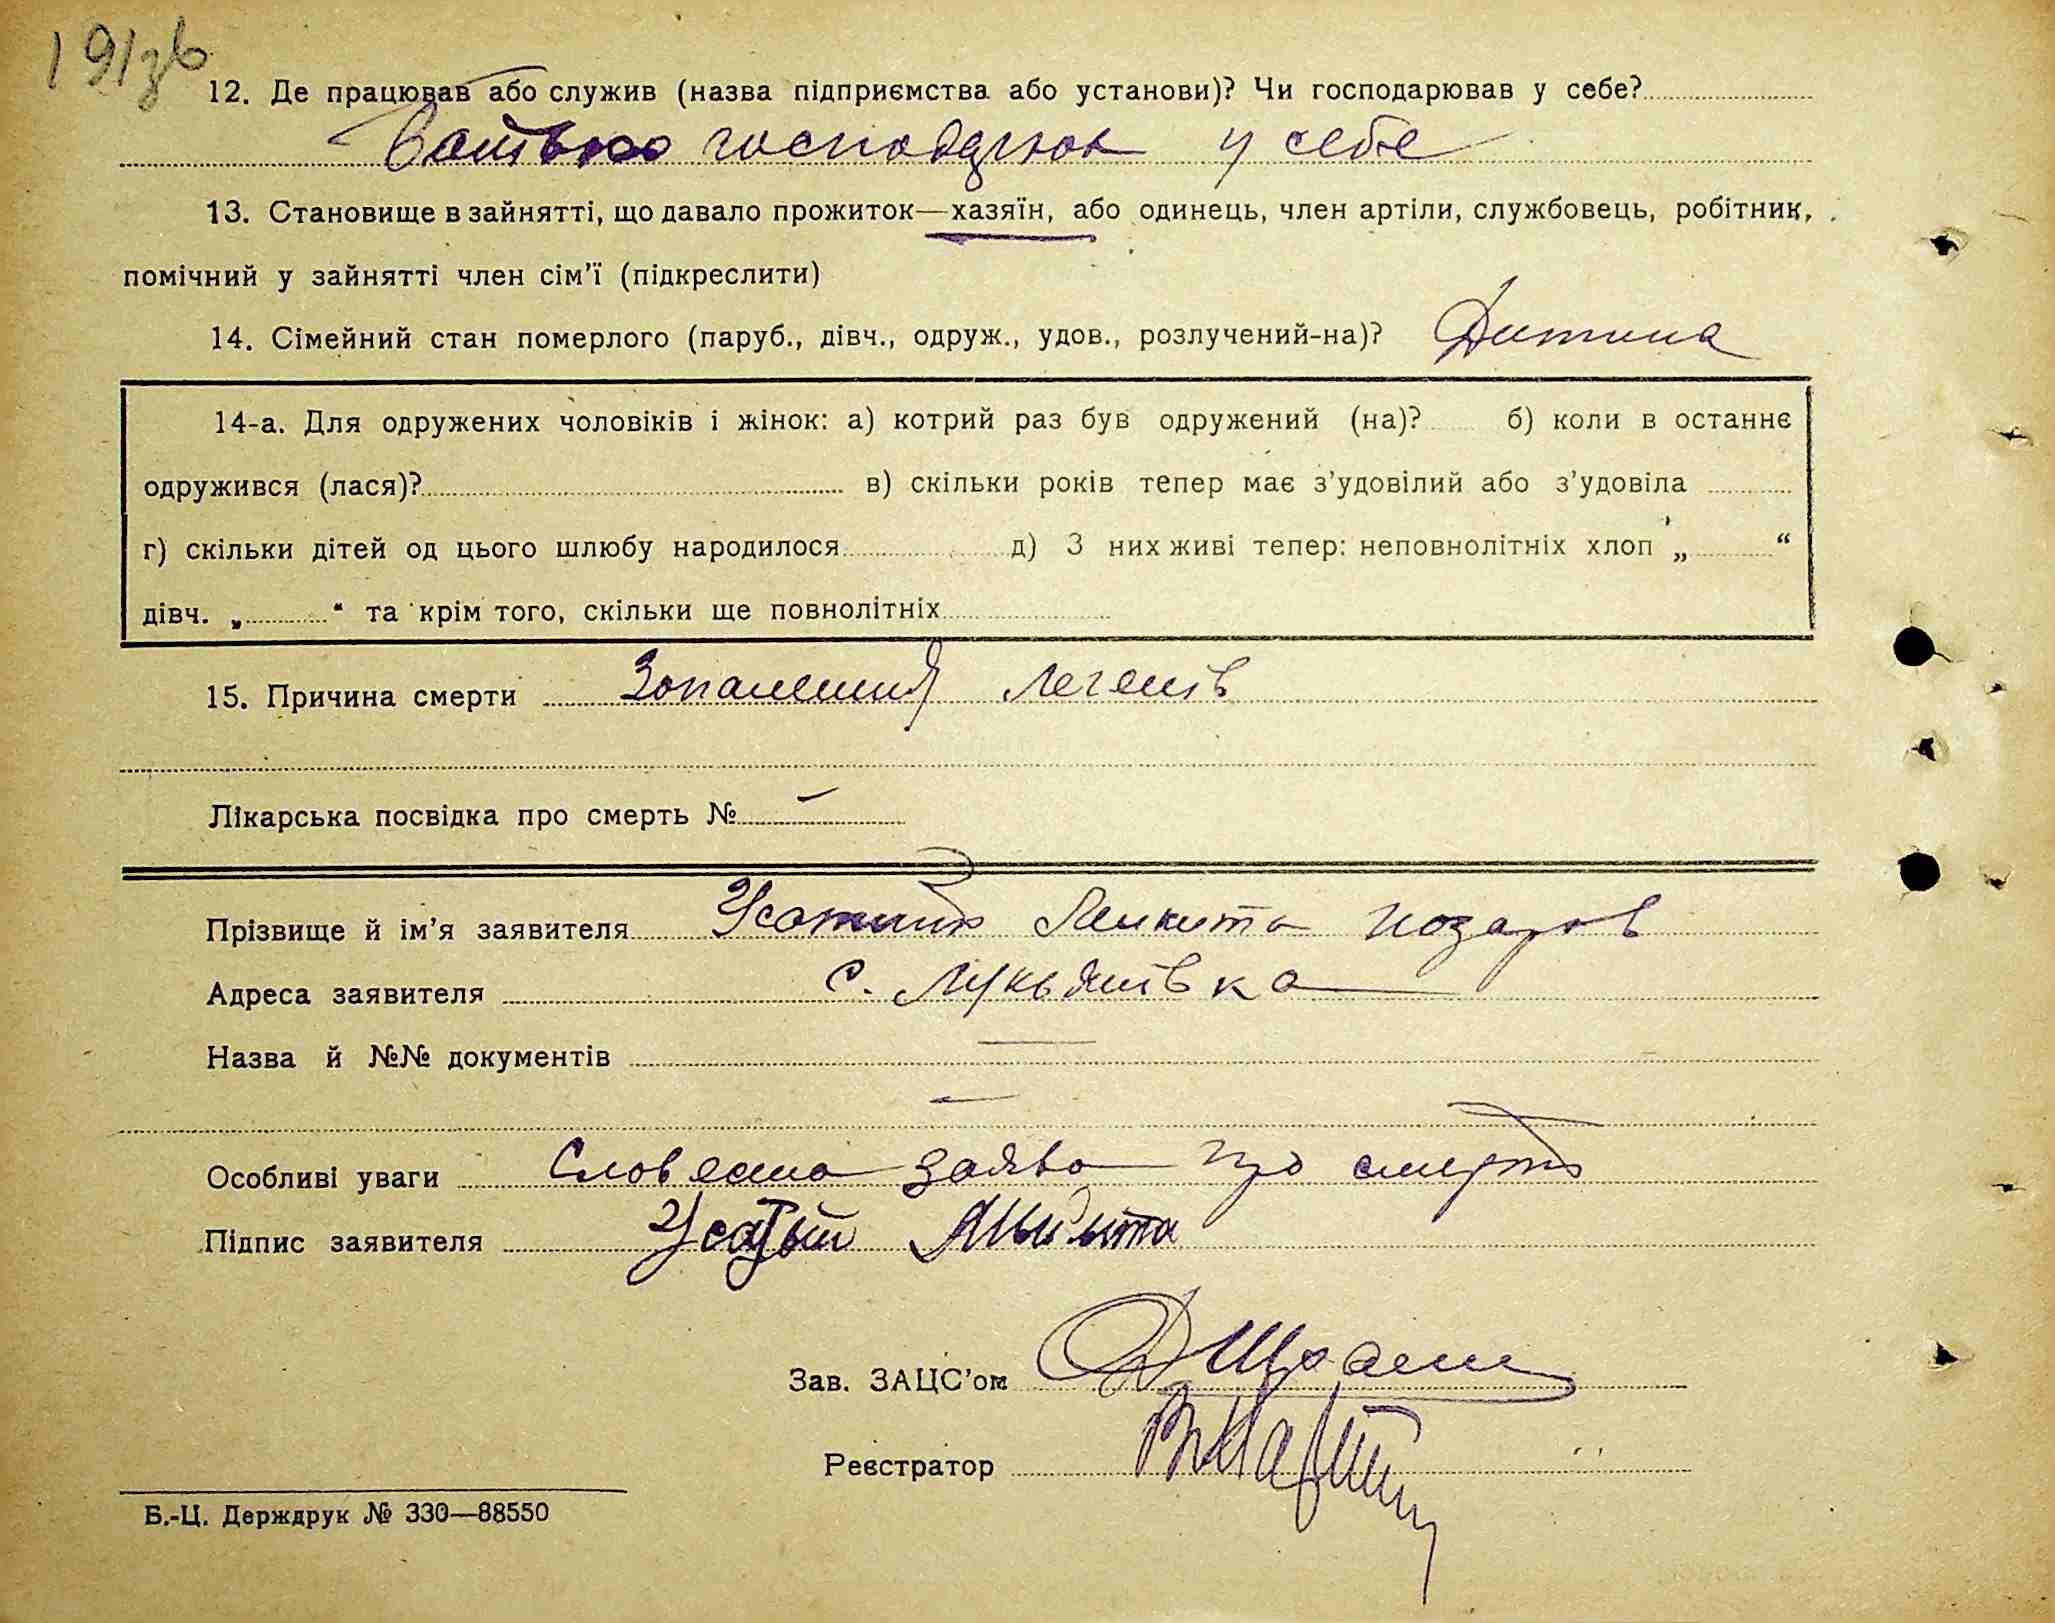 191зв
12. Де працював або служив (назва підприємства або установи)? Чи господарював у себе?
Батько господарюв у себе
13. Становище в зайнятті, що давало прожиток—хазяїн, або одинець, член артіли, службовець, робітник,
помічний у зайнятті член сім’ї (підкреслити)
14. Сімейний стан померлого (паруб., дівч., одруж., удов., розлучений-на)? Дитина
14-а. Для одружених чоловіків і жінок: а) котрий раз був одружений (на)? б) коли в останнє
одружився (лася)? в) скільки років тепер має з’удовілий або з’удовіла
г) скільки дітей од цього шлюбу народилося д) З них живі тепер: неповнолітніх хлоп „ “
дівч. „ “ та крім того, скільки ще повнолітніх
15. Причина смерти Запалення легенів
Лікарська посвідка про смерть № —
Прізвище й ім’я заявителя Усатий Микита Назаров
Адреса заявителя с. Лукьянівка
Назва й №№ документів —
—
Особливі уваги Словесна заява про смерть
Підпис заявителя Усатый Мыкыта
Зав. ЗАЦС’ом
Реєстратор
Б.-Ц. Держдрук № 330—88550